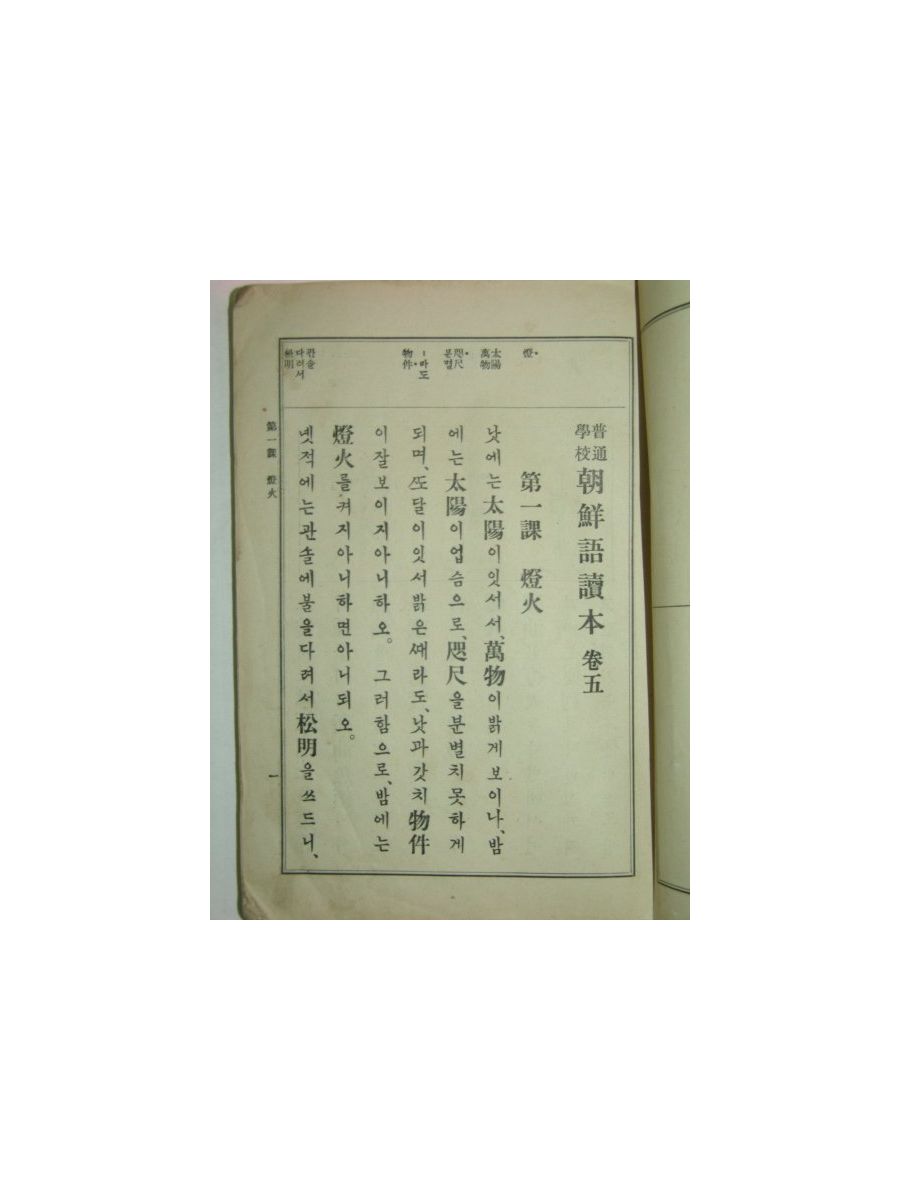 普通
學校
朝鮮語讀本 卷五
第一課 燈火
낫에는太陽이잇서서、萬物이밝게보이나、밤
에는太陽이업슴으로、咫尺을분별치못하게
되며、ᄯᅩ달이잇서밝은ᄯᅢ라도、낫과갓치物件
이잘보이지아니하오。 그러함으로、밤에는
燈火를켜지아니하면아니되오。
녯적에는관솔에불을다려서松明을쓰드니、
燈
太陽
萬物
咫尺
분별
ㅣ라도
物件
관솔
다려서
松明
第一課 燈火
一